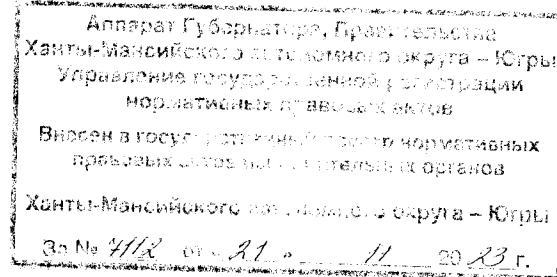 Аппарат Губернатора, Правительства
Ханты-Мансийского автономного округа – Югры
Управление государственной регистрации
нормативных правовых актов
Внесен в государственный реестр нормативных
правовых актов исполнительных органов
Ханты-Мансийского автономного округа – Югры
За № 7112 от « 21 » 11 20 23 г.